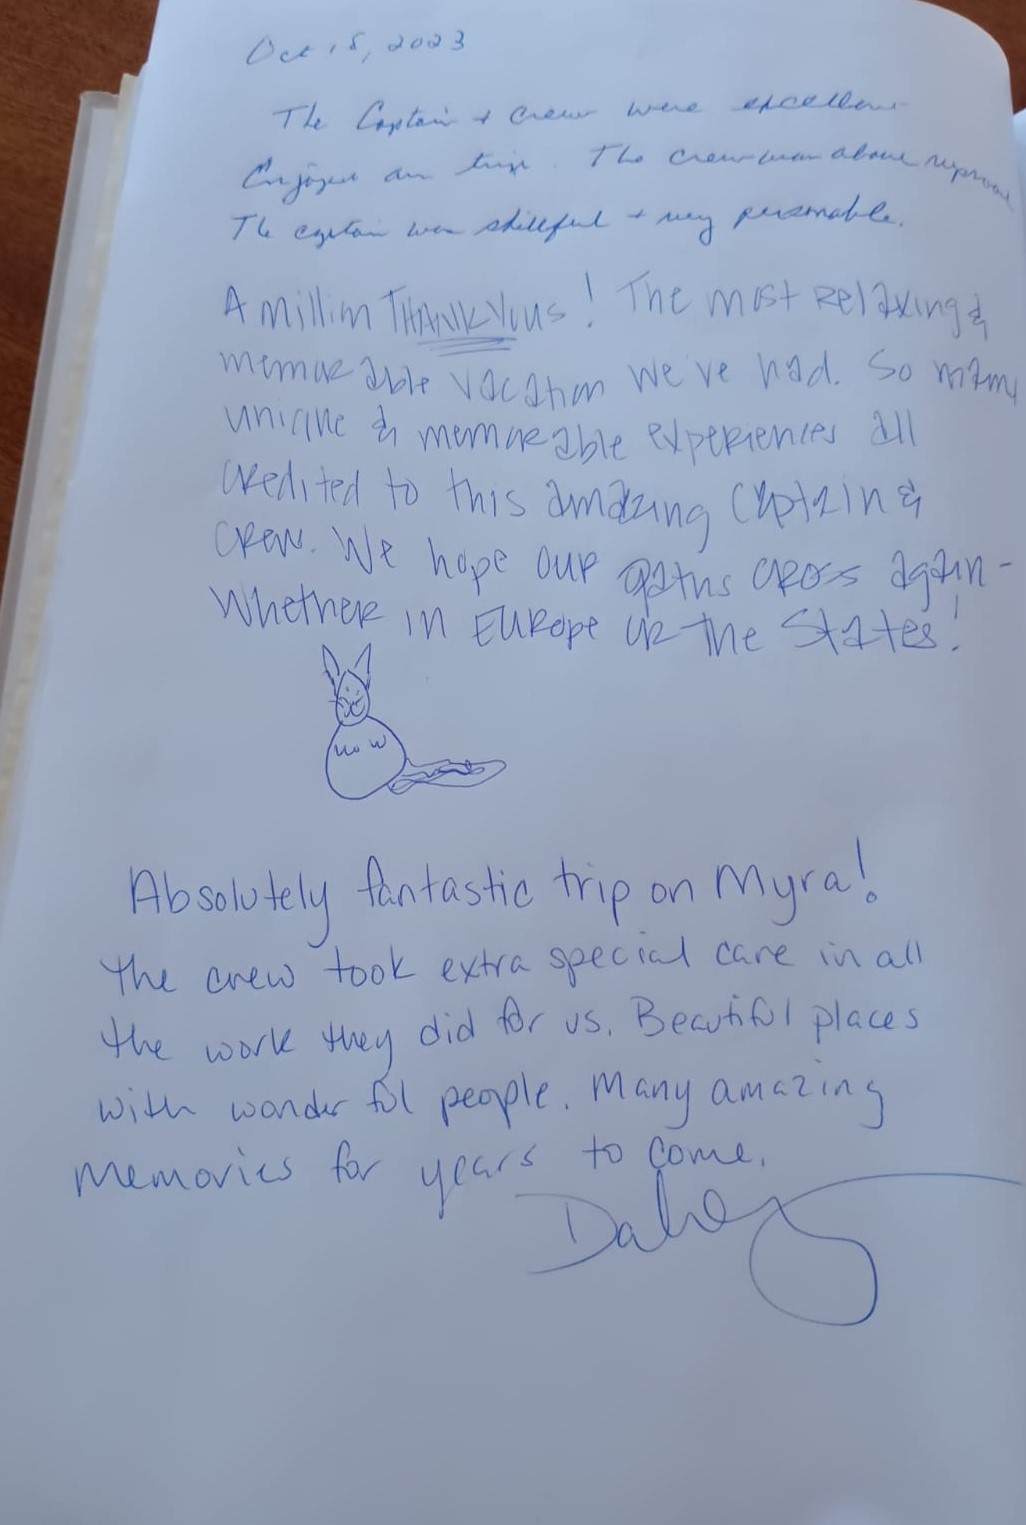 Oct 15, 2023
The Captain + Crew were excellent
Enjoyed our trip. The crew was above reproach
The captain was skillful + very personable.
A million THANKYous! The most Relaxing &
memorable vacation we've had. So many
unique & memorable experiences all
credited to this amazing Captain &
Crew. We hope our paths cross again -
Whether in Europe or the States!
Absolutely fantastic trip on Myra!
The crew took extra special care in all
the work they did for us. Beautiful places
with wonderful people. Many amazing
memories for years to come.